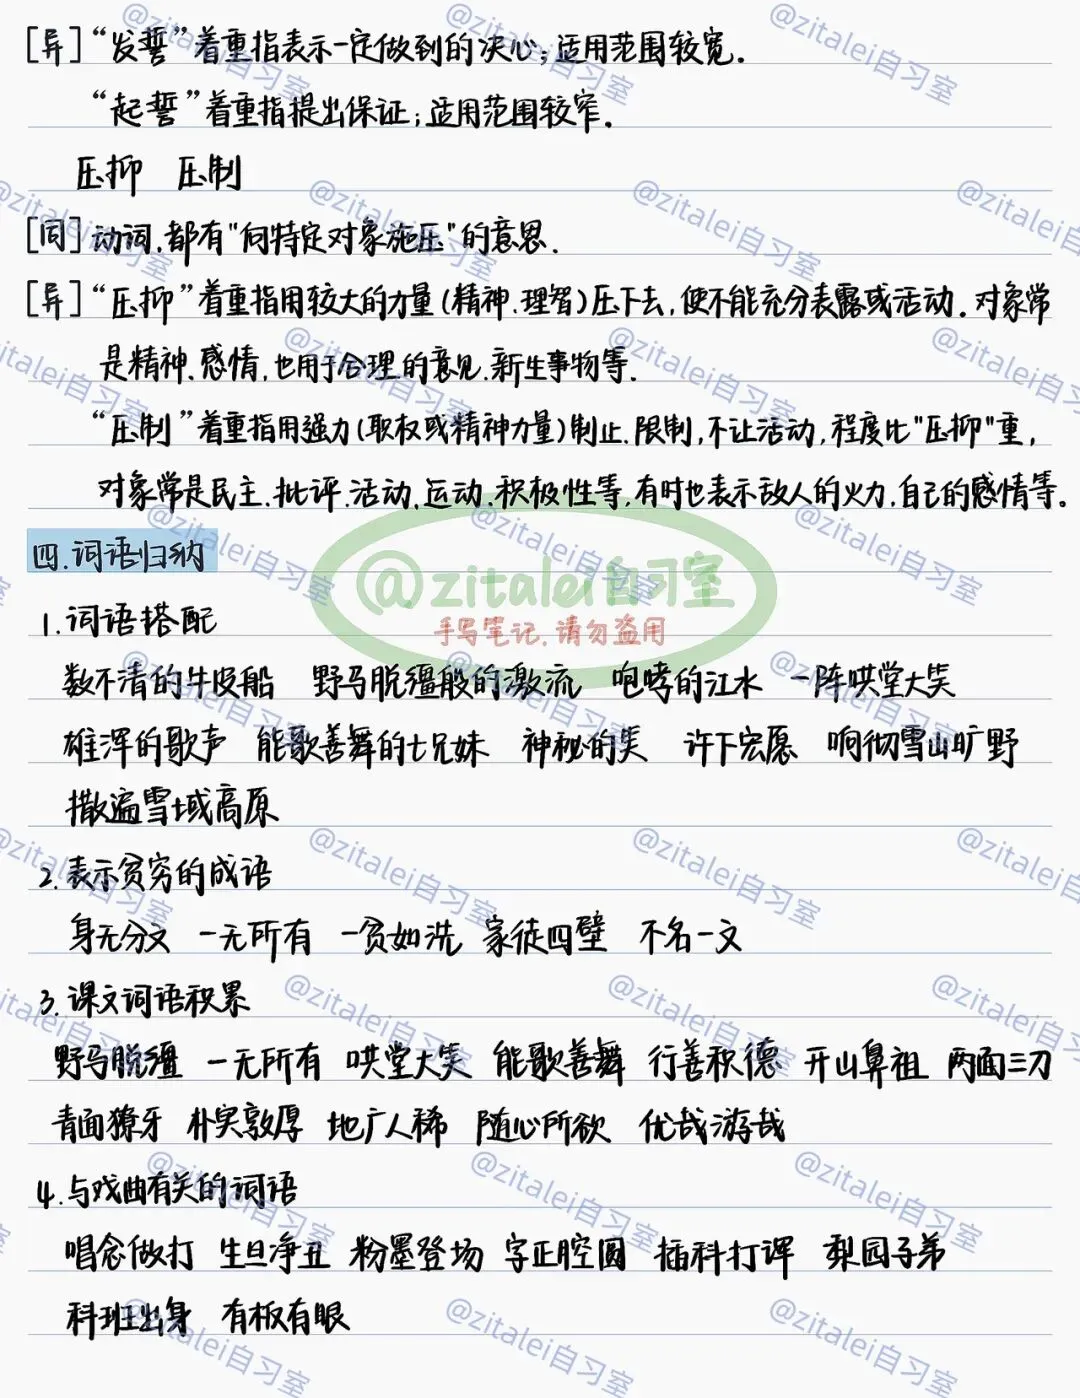 [异]“发誓”着重指表示一定做到的决心;适用范围较宽.
“起誓”着重指提出保证;适用范围较窄.
压抑 压制
[同]动词.都有"向特定对象施压"的意思.
[异]“压抑”着重指用较大的力量(精神.理智)压下去,使不能充分表露或活动.对象常
是精神.感情,也用于合理的意见.新生事物等.
“压制”着重指用强力(职权或精神力量)制止.限制,不让活动,程度比"压抑"重,
对象常是民主.批评.活动.运动.积极性等,有时也表示敌人的火力.自己的感情等。
四.词语归纳
@zitalei自习室
手写笔记.请勿盗用
1.词语搭配
数不清的牛皮船 野马脱缰般的激流 咆哮的江水 一阵哄堂大笑
雄浑的歌声 能歌善舞的七兄妹 神秘的笑 许下宏愿 响彻雪山旷野
撒遍雪域高原
2.表示贫穷的成语
身无分文 一无所有 一贫如洗 家徒四壁 不名一文
3.课文词语积累
野马脱缰 一无所有 哄堂大笑 能歌善舞 行善积德 开山鼻祖 两面三刀
青面獠牙 朴实敦厚 地广人稀 随心所欲 优哉游哉
4.与戏曲有关的词语
唱念做打 生旦净丑 粉墨登场 字正腔圆 插科打诨 梨园子弟
科班出身 有板有眼